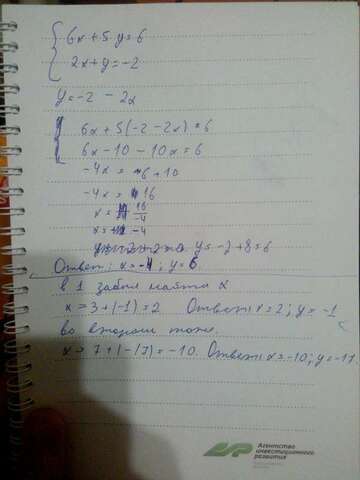 6x + 5y = 6
2x + y = -2
y = -2 - 2x
6x + 5(-2 - 2x) = 6
6x - 10 - 10x = 6
-4x = 6 + 10
-4x = 16
x = 16/-4
x = -4
y = -2 + 8 = 6
Ответ: x = -4; y = 6
в 1 забыл найти x
x = 3 + (-1) = 2 Ответ: x = 2; y = -1
во втором тоже.
x = 7 + (-17) = -10. Ответ: x = -10; y = -17.
Агентство
инвестиционного
развития